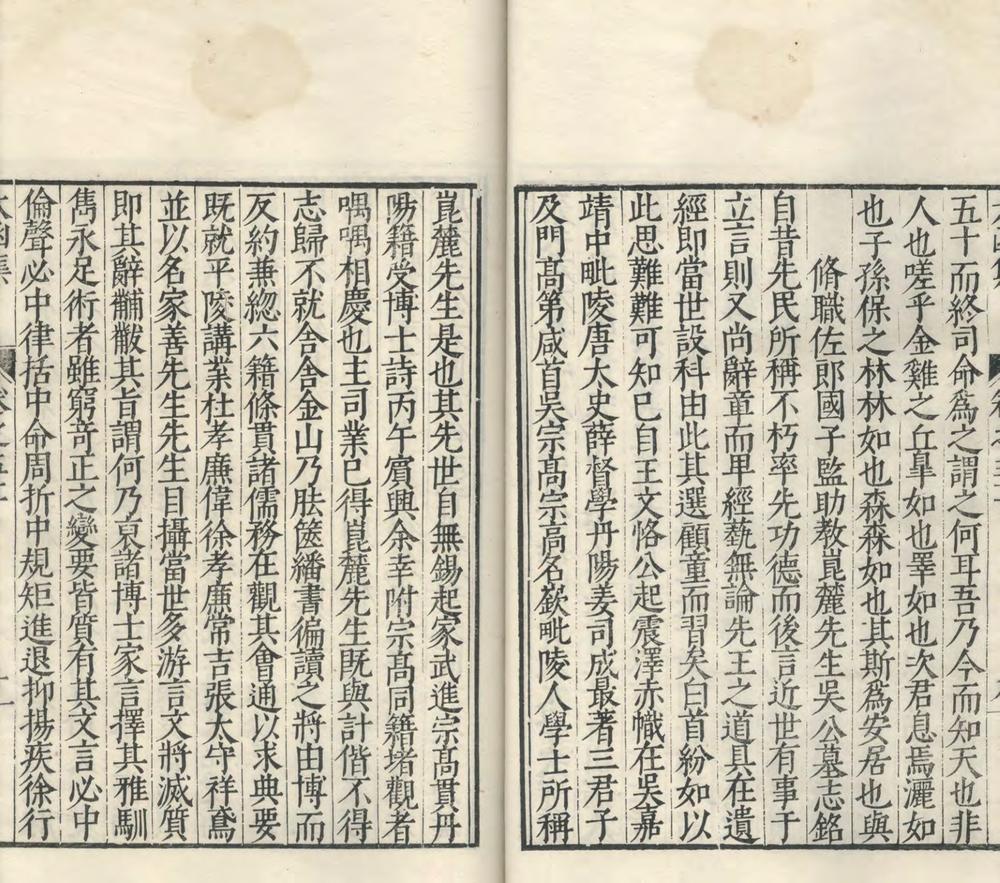 五十而終司命爲之謂之何耳吾乃今而知天也非
人也嗟乎金雞之丘臯如也睪如也次君息焉灑如
也子孫保之林林如也森森如也其斯爲安居也與
脩職佐郎國子監助教崑麓先生吳公墓志銘
自昔先民所稱不朽率先功德而後言近世有事于
立言則又尚辭章而卑經蓺無論先王之道具在遺
經即當世設科由此其選顧童而習矣白首紛如以
此思難難可知已自王文恪公起震澤赤幟在吳嘉
靖中毗陵唐太史薛督學丹陽姜司成最著三君子
及門高第咸首吳宗高宗高名嶔毗陵人學士所稱
崑麓先生是也其先世自無錫起家武進宗高貫丹
陽籍受博士詩丙午賔興余幸附宗高同籍堵觀者
喁喁相慶也主司業已得崑麓先生既與計偕不得
志歸不就舍舍金山乃胠篋繙書徧讀之將由博而
反約兼總六籍條貫諸儒務在觀其會通以求典要
既就平陵講業杜孝廉偉徐孝廉常吉張太守祥鳶
並以名家善先生先生目攝當世多游言文將滅質
即其辭黼黻其旨謂何乃哀諸博士家言擇其雅馴
雋永足術者雖窮竒正之變要皆質有其文言必中
倫聲必中律括中命周折中規矩進退抑揚疾徐行